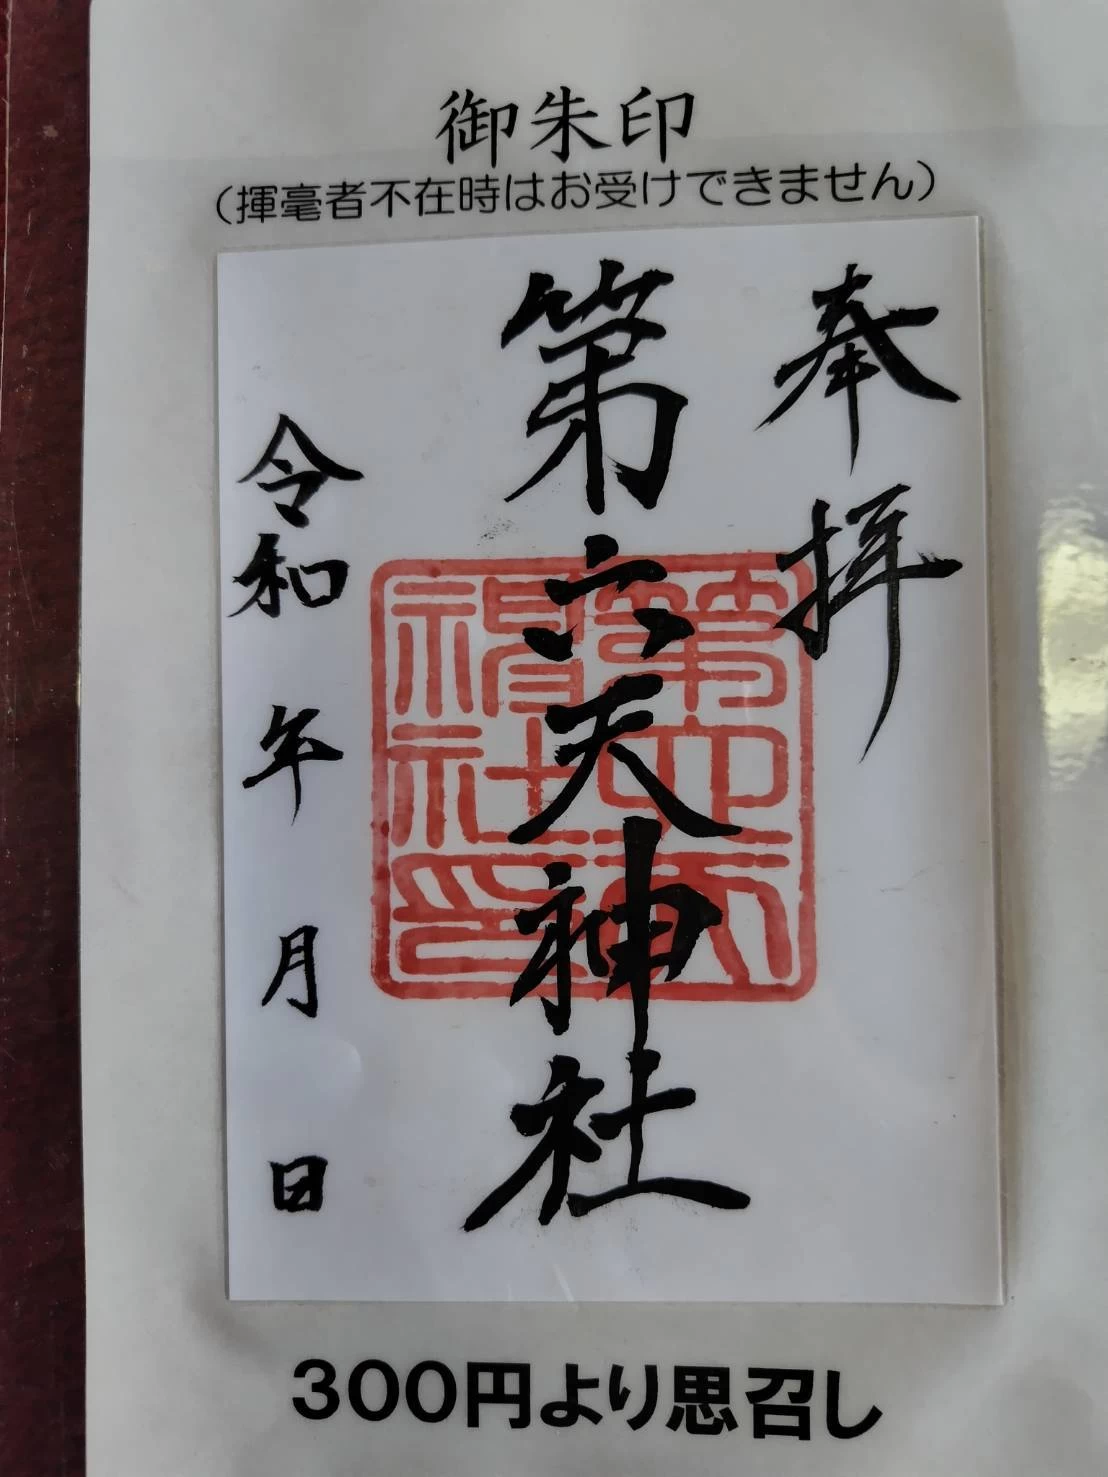 御朱印
（揮毫者不在時はお受けできません）
奉拝
第六天神社
令和 年 月 日
第六天
神社印
300円より思召し